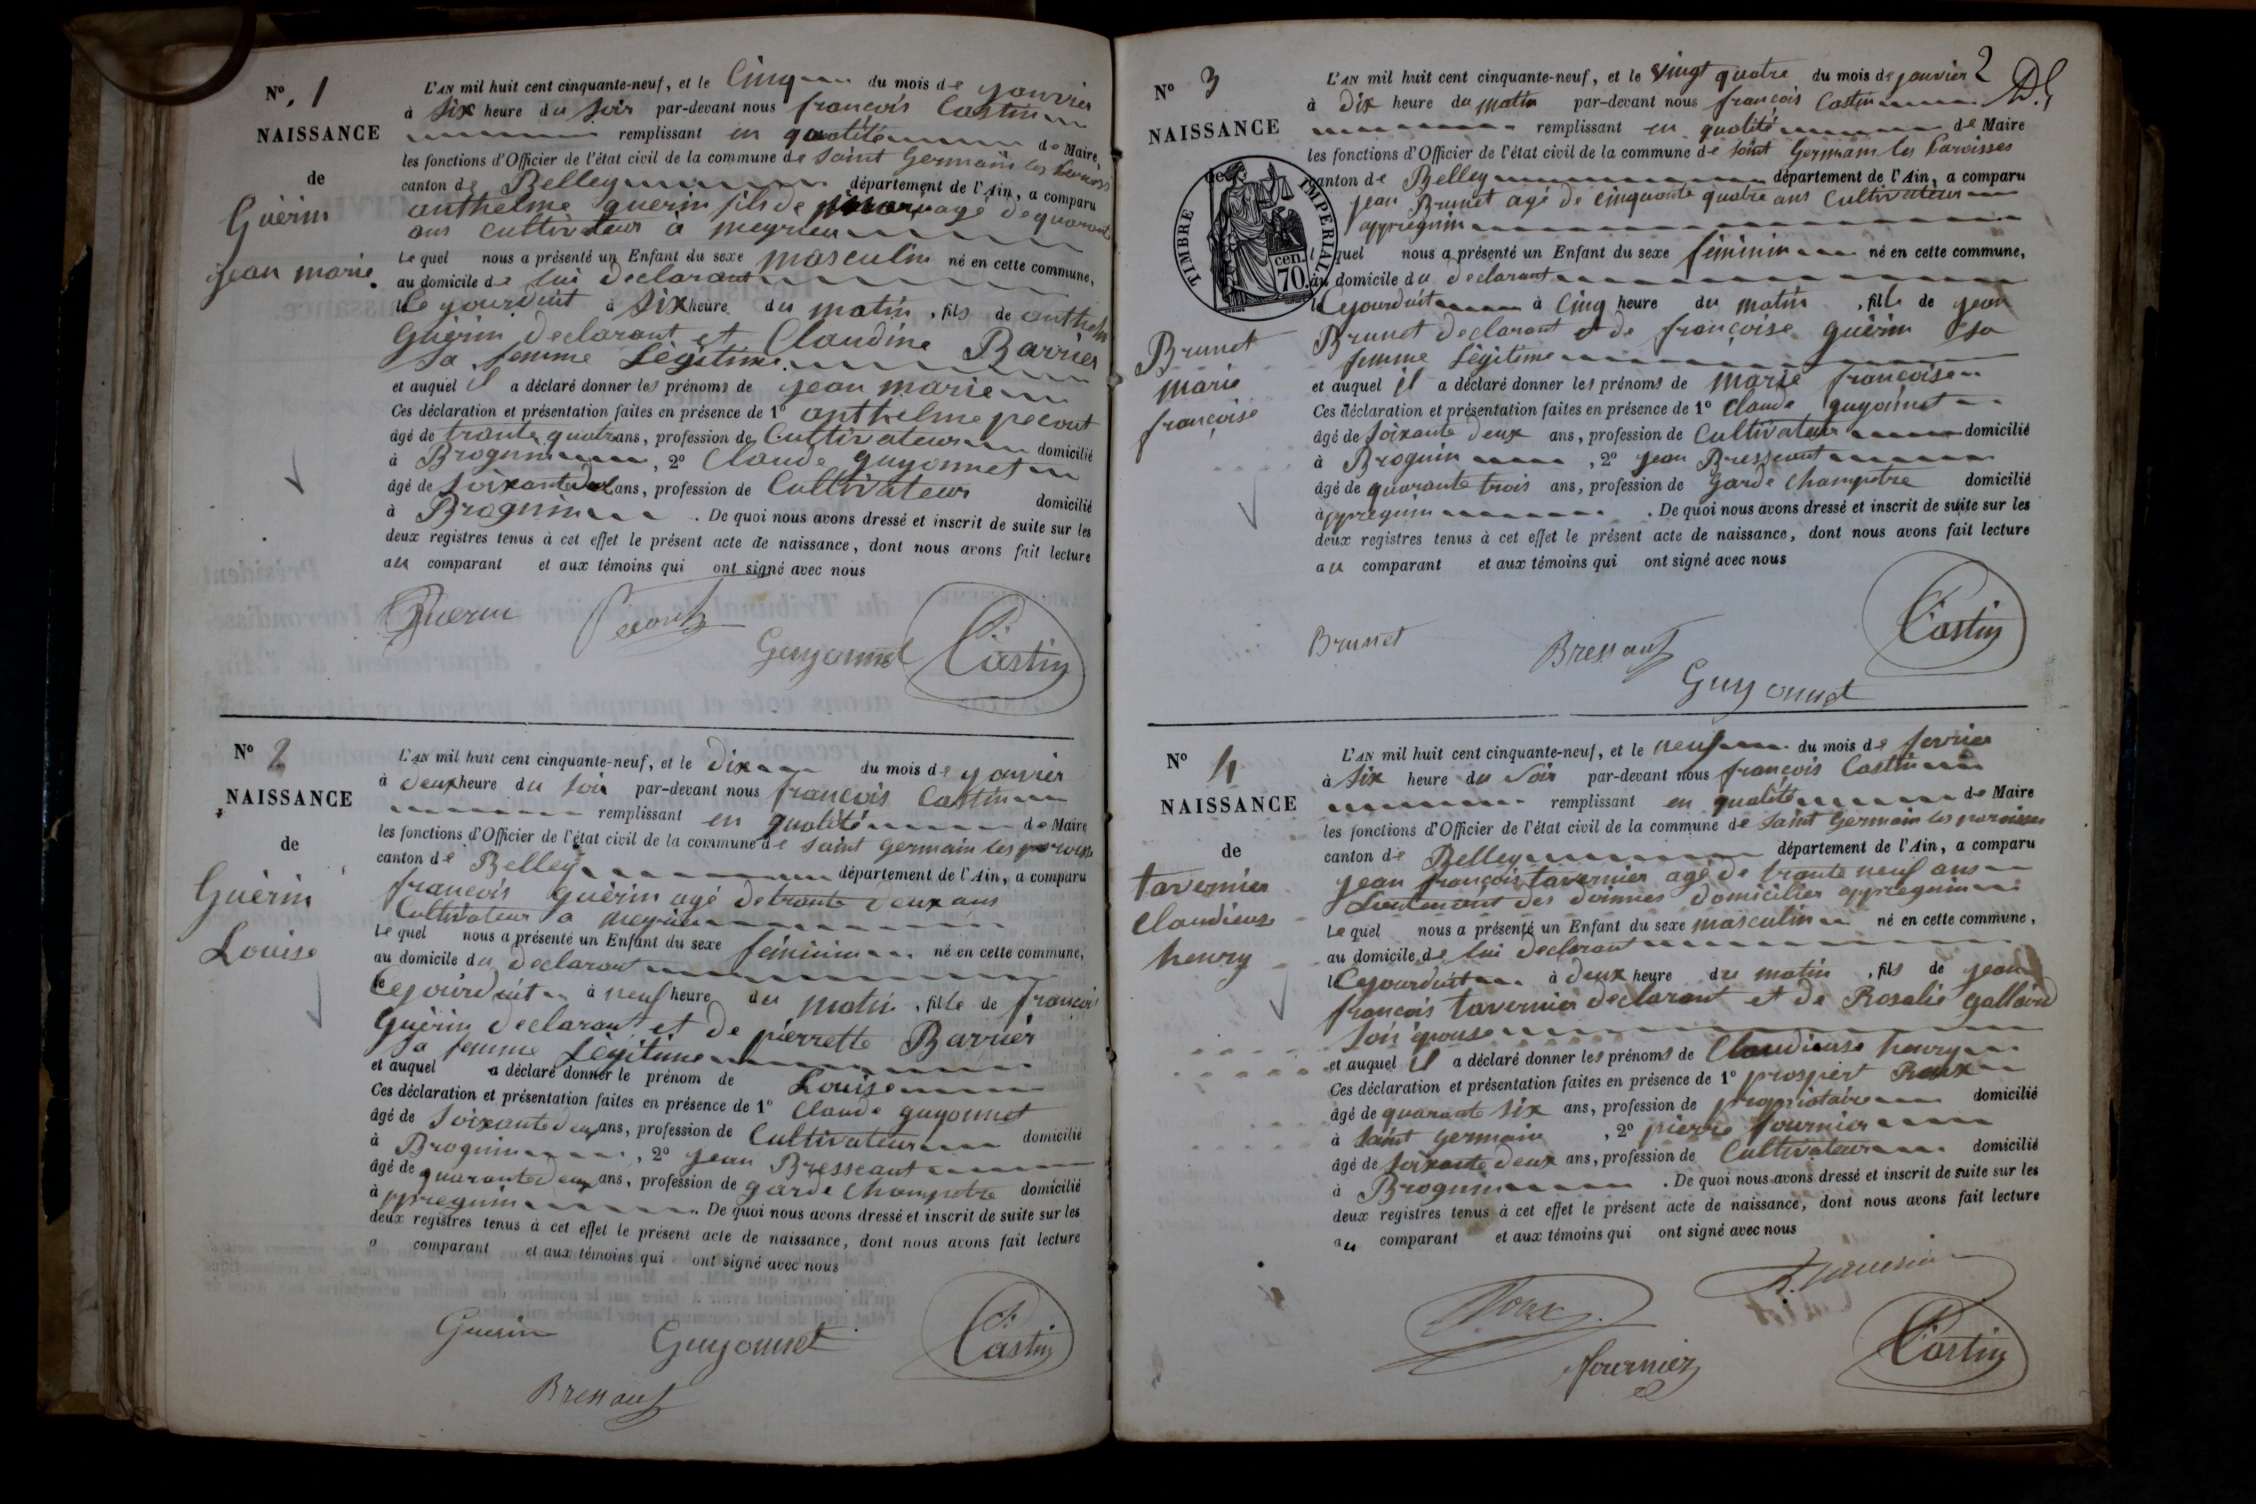 N° 1
NAISSANCE
de
Guérin
jean marie
L'AN mil huit cent cinquante-neuf, et le Cinq du mois de janvier
à six heure du soir par-devant nous françois Castin
remplissant en qualité de Maire
les fonctions d'Officier de l'état civil de la commune de saint Germain les Paroisses
canton de Belley département de l'Ain, a comparu
anthelme guerin fils de agé de quarante
ans cultivateur à meyrieu
Le quel nous a présenté un Enfant du sexe masculin né en cette commune,
au domicile de lui declarant
le Ce jourduit à six heure du matin, fils de anthelme
Guérin declarant et Claudine Barrier
sa femme Légitime
et auquel il a déclaré donner les prénoms de jean marie
Ces déclaration et présentation faites en présence de 1° anthelme pecout
âgé de trante quatre ans, profession de Cultivateur domicilié
à Brognin, 2° Claude guyonnet
âgé de soixante deux ans, profession de Cultivateur domicilié
à Brognin. De quoi nous avons dressé et inscrit de suite sur les
deux registres tenus à cet effet le présent acte de naissance, dont nous avons fait lecture
au comparant et aux témoins qui ont signé avec nous
Guerin Pecout Guyonnet Castin
N° 2
NAISSANCE
de
Guérin
Louise
L'AN mil huit cent cinquante-neuf, et le dix du mois de janvier
à deux heure du soir par-devant nous françois Castin
remplissant en qualité de Maire
les fonctions d'Officier de l'état civil de la commune de saint germain les paroisses
canton de Belley département de l'Ain, a comparu
francois guérin agé de trante deux ans
Cultivateur a meyrieu
Le quel nous a présenté un Enfant du sexe féminin né en cette commune,
au domicile du declarant
le Cejourduit à neuf heure du matin, fille de françois
Guérin declarant et de pierrette Barrier
sa femme Légitime
et auquel a déclaré donner le prénom de Louise
Ces déclaration et présentation faites en présence de 1° Claude guyonnet
âgé de soixante deux ans, profession de Cultivateur domicilié
à Brognin, 2° jean Bresseaut
âgé de quarante deux ans, profession de garde Champetre domicilié
à ppregnin. De quoi nous avons dressé et inscrit de suite sur les
deux registres tenus à cet effet le présent acte de naissance, dont nous avons fait lecture
a comparant et aux témoins qui ont signé avec nous
Guerin Guyonnet Castin
Bressaut
2
N° 3
NAISSANCE
de
TIMBRE IMPERIAL
70 cen.
Brunet
marie
françoise
L'AN mil huit cent cinquante-neuf, et le vingt quatre du mois de janvier
à dix heure du matin par-devant nous françois Castin
remplissant en qualité de Maire
les fonctions d'Officier de l'état civil de la commune de saint Germain les Paroisses
canton de Belley département de l'Ain, a comparu
jean Brunet agé de cinquante quatre ans Cultivateur
appregnin
lequel nous a présenté un Enfant du sexe féminin né en cette commune,
au domicile du declarant
le Cejourduit à Cinq heure du matin, fille de jean
Brunet declarant et de françoise guérin sa
femme Légitime
et auquel il a déclaré donner les prénoms de marie françoise
Ces déclaration et présentation faites en présence de 1° Claude guyonnet
âgé de soixante deux ans, profession de Cultivateur domicilié
à Brognin, 2° jean Bresseaut
âgé de quarante trois ans, profession de garde Champetre domicilié
à ppregnin. De quoi nous avons dressé et inscrit de suite sur les
deux registres tenus à cet effet le présent acte de naissance, dont nous avons fait lecture
au comparant et aux témoins qui ont signé avec nous
Brunet Bressaut Castin
Guyonnet
N° 4
NAISSANCE
de
tavernier
Claudieuse
henry
L'AN mil huit cent cinquante-neuf, et le neuf du mois de fevrier
à six heure du soir par-devant nous françois Castin
remplissant en qualité de Maire
les fonctions d'Officier de l'état civil de la commune de saint Germain les paroisses
canton de Belley département de l'Ain, a comparu
jean françois tavernier agé de trante neuf ans
Lieutenant des doinnes domicilier appregnin
Le quel nous a présenté un Enfant du sexe masculin né en cette commune,
au domicile de lui declarant
le Cejourduit à deux heure du matin, fils de jean
françois tavernier declarant et de Rosalie gallavid
son épouse
et auquel il a déclaré donner les prénoms de Claudieuse henry
Ces déclaration et présentation faites en présence de 1° prospert Roux
âgé de quarante six ans, profession de propriotaire domicilié
à saint germain, 2° pierre fournier
âgé de soixante deux ans, profession de Cultivateur domicilié
à Brognin. De quoi nous avons dressé et inscrit de suite sur les
deux registres tenus à cet effet le présent acte de naissance, dont nous avons fait lecture
au comparant et aux témoins qui ont signé avec nous
Roux Tavernier
fournier Castin